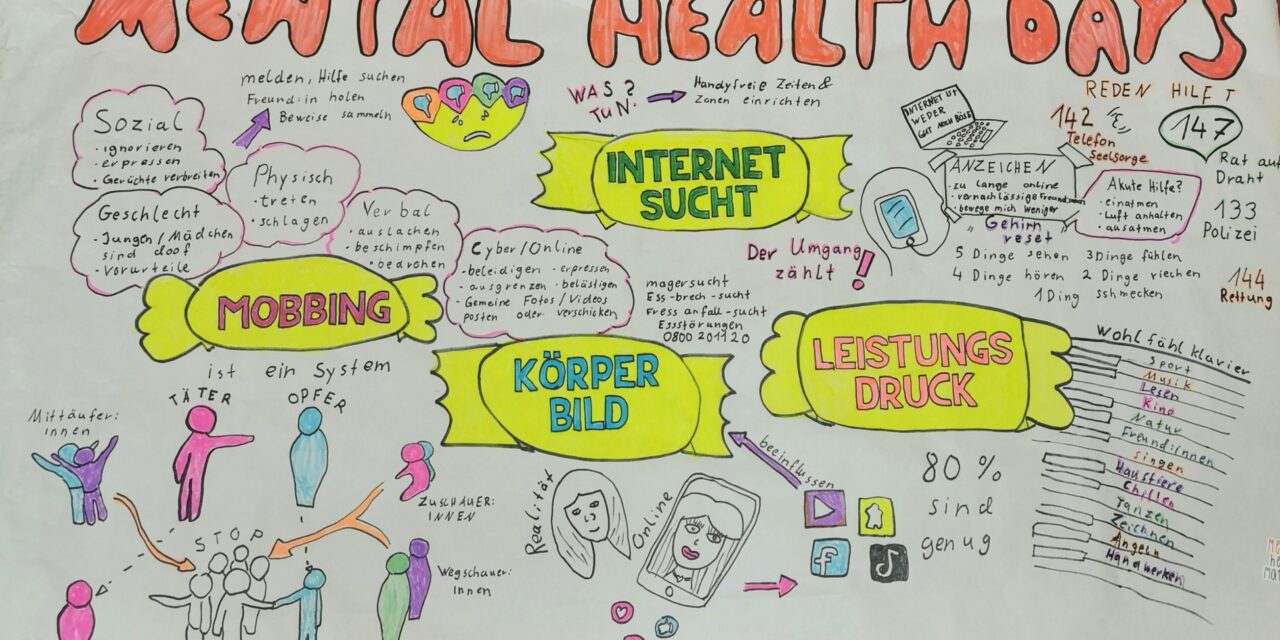 MENTAL HEALTH DAYS
melden, Hilfe suchen
Freund:in holen
Beweise sammeln
Sozial
• ignorieren
• erpressen
• Gerüchte verbreiten
Physisch
• treten
• schlagen
Geschlecht
• Jungen/Mädchen
sind doof
• Vorurteile
Verbal
• auslachen
• beschimpfen
• bedrohen
Cyber/Online
• beleidigen • erpressen
• ausgrenzen • belästigen
• Gemeine Fotos/Videos
posten oder verschicken
MOBBING
ist ein System
TÄTER
OPFER
Mitläufer:
innen
ZUSCHAUER:
INNEN
STOP
Wegschauer:
innen
WAS?
TUN:
Handyfreie Zeiten &
Zonen einrichten
INTERNET
SUCHT
INTERNET IST
WEDER
GUT NOCH BÖSE
ANZEICHEN
• zu lange online
• vernachlässige Freund:innen
• bewege mich weniger
Der Umgang
zählt!
REDEN HILFT
142
Telefon
Seelsorge
147
Rat auf
Draht
133
Polizei
144
Rettung
Akute Hilfe?
• einatmen
• Luft anhalten
• ausatmen
Gehirn
reset
5 Dinge sehen 3 Dinge fühlen
4 Dinge hören 2 Dinge riechen
1 Ding schmecken
magersucht
Ess-brech-sucht
Fress anfall-sucht
Essstörungen
0800 201120
KÖRPER
BILD
Realität
Online
beeinflussen
LEISTUNGS
DRUCK
80 %
sind
genug
Wohl fühl klavier
Sport
Musik
Lesen
Kino
Natur
Freund:innen
singen
Haustiere
Chillen
Tanzen
Zeichnen
Angeln
Handwerken